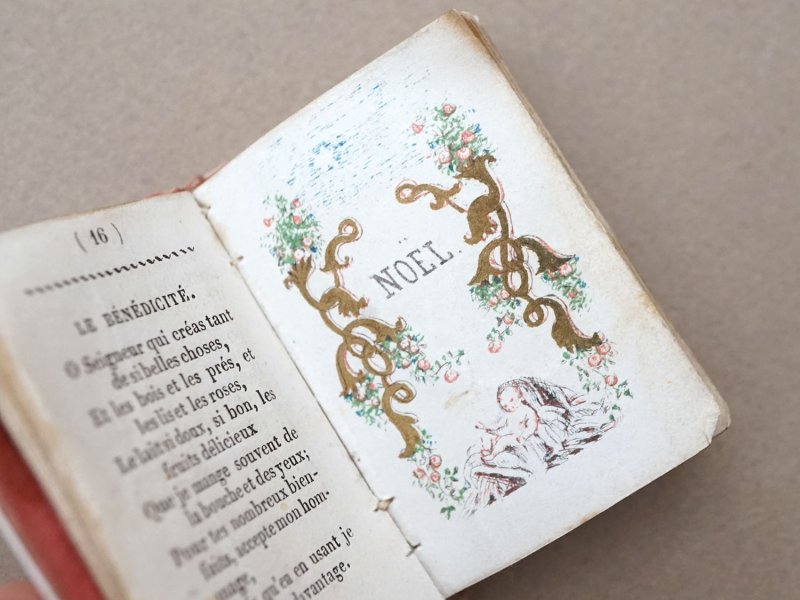 ( 16 )
LE BÉNÉDICITÉ.
O Seigneur qui créas tant
de si belles choses,
Et les bois et les prés, et
les lis et les roses,
Le lait si doux, si bon, les
fruits délicieux
Que je mange souvent de
la bouche et des yeux;
Pour tes nombreux bien-
faits, accepte mon hom-
qu'en en usant je
davantage.
NOËL.